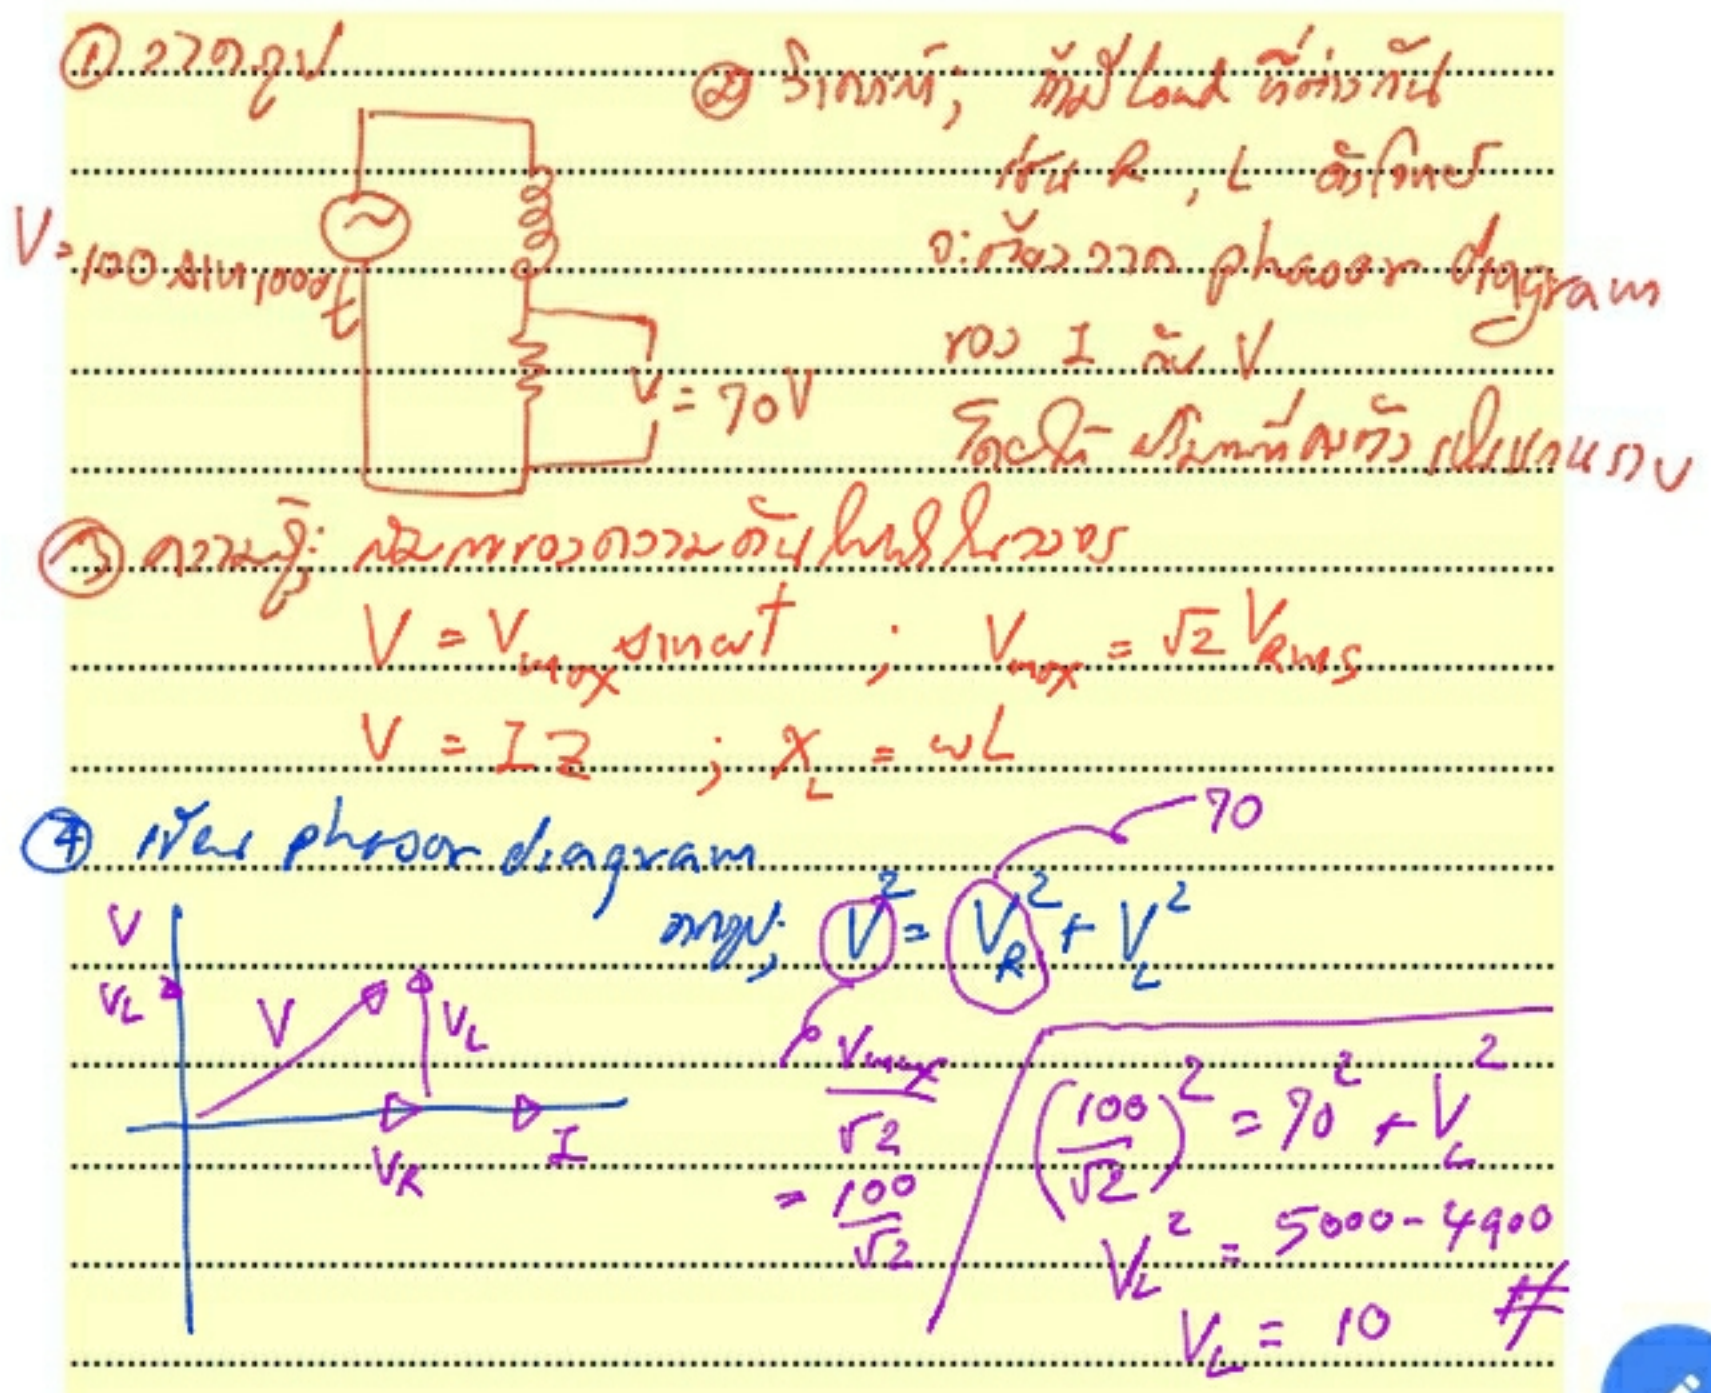 ① วาดรูป
V = 100 sin 1000t
V = 70V
② วิเคราะห์; ถ้ามี Load ที่ต่างกัน
เช่น R, L ดังโจทย์
จะต้องวาด phasor diagram
ของ I กับ V
โดยให้ ปริมาณที่คงตัว เป็นแกนราบ
③ ความรู้: สมการของความดันไฟฟ้าในวงจร
V = Vmax sin ωt ; Vmax = √2 VRms
V = IZ ; XL = ωL
④ เขียน phasor diagram
V
VL
V
VL
VR
I
70
จากรูป; V² = VR² + VL²
Vmax/√2
= 100/√2
(100/√2)² = 70² + VL²
VL² = 5000 - 4900
VL = 10 #